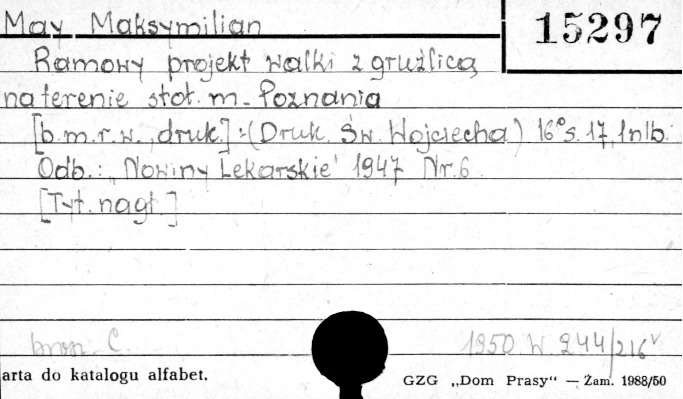 May Maksymilian
15297
Ramowy projekt walki z gruźlicą
na terenie stoł. m. Poznania
[b. m. r. w., druk.]: (Druk. Św. Wojciecha) 16° s. 17, 1 nlb.
Odb.: „Nowiny Lekarskie" 1947 Nr. 6
[Tyt. nagł.]
bron. C.
1950 W 244/216
arta do katalogu alfabet.
GZG „Dom Prasy“ — Zam. 1988/50